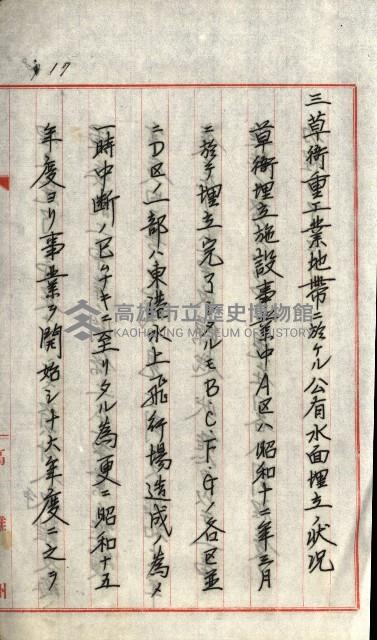 17
三 草衙重工業地帶ニ於ケル公有水面埋立ノ狀況
草衙埋立施設事業中A区ハ昭和十二年三月
ニ於テ埋立完了シタルモB.C.F.Gノ各区並
ニD区ノ一部ハ東港水上飛行場造成ノ為メ
一時中断ノ已ムナキニ至リタル為更ニ昭和十五
年度ヨリ事業ヲ開始シ十六年度ニ之ヲ
高雄市立歷史博物館
KAOHSIUNG MUSEUM OF HISTORY
高雄州